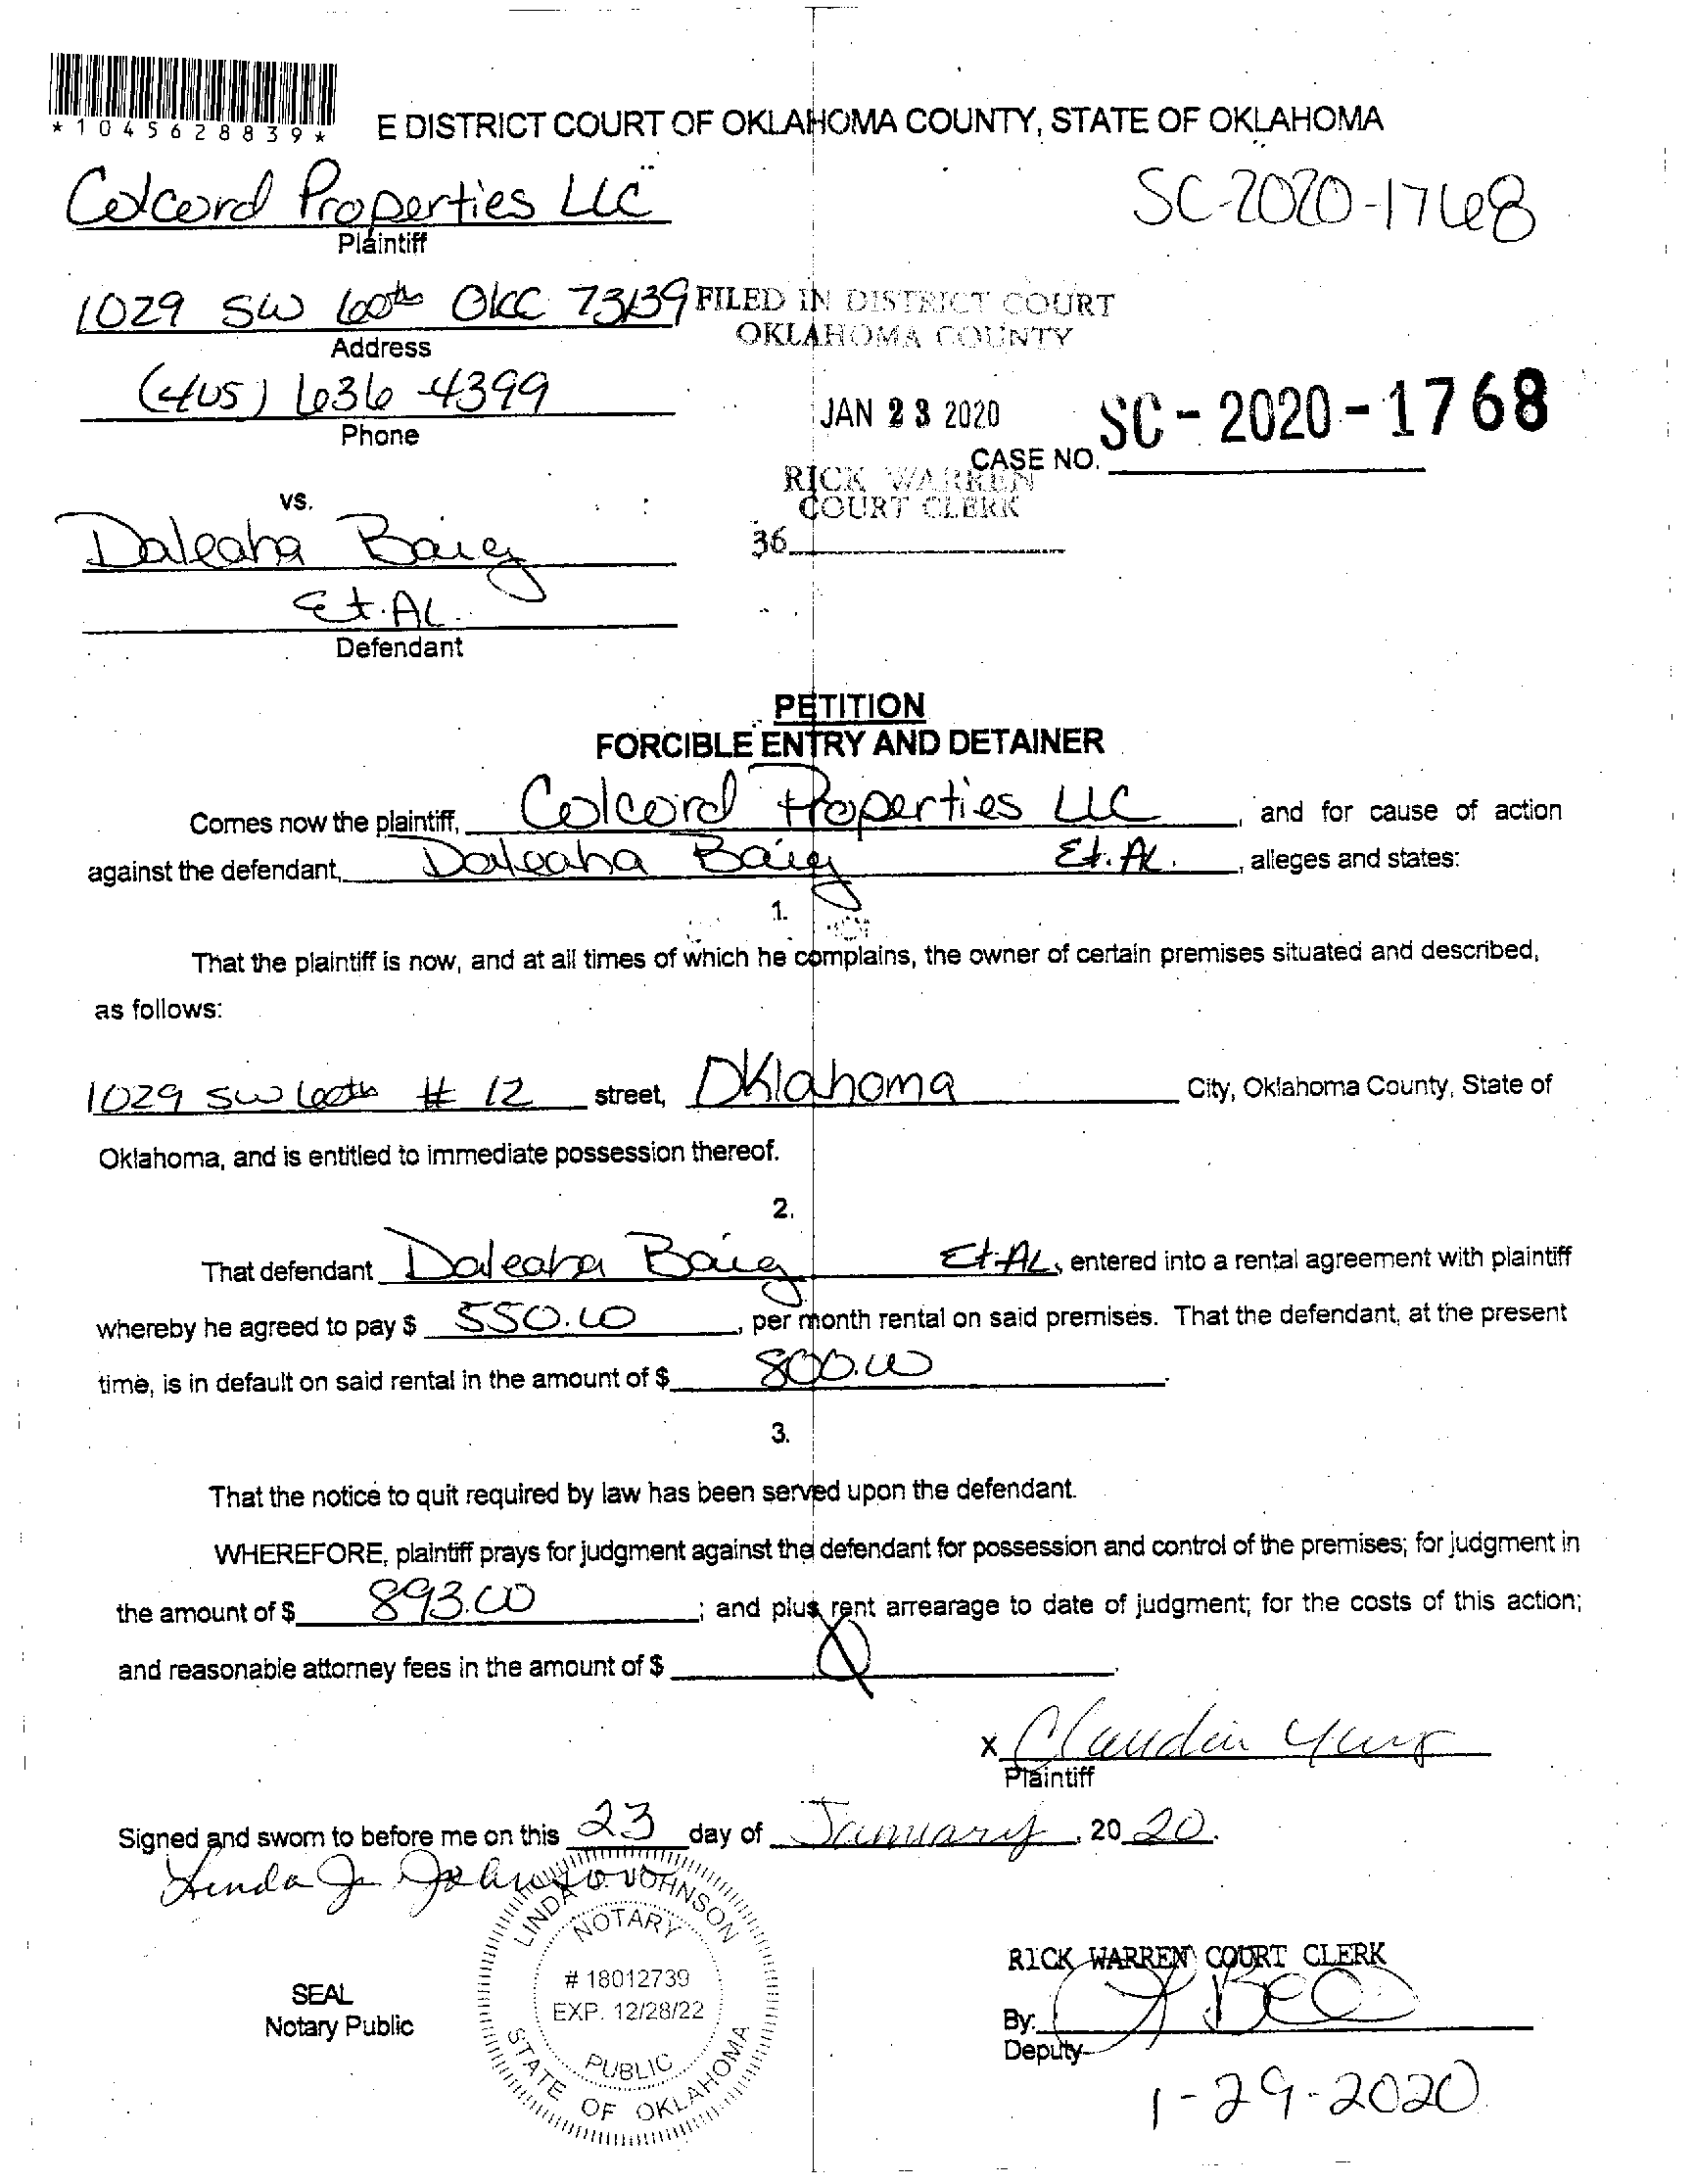 *1045628839*
E DISTRICT COURT OF OKLAHOMA COUNTY, STATE OF OKLAHOMA
Colcord Properties LLC
SC-2020-1768
Plaintiff
1029 SW 60th OKC 73139
FILED IN DISTRICT COURT
OKLAHOMA COUNTY
Address
(405) 636-4399
JAN 23 2020
SC-2020-1768
Phone
CASE NO.
RICK WARREN
COURT CLERK
vs.
36
Daleaha Baig
Et. AL.
Defendant
PETITION
FORCIBLE ENTRY AND DETAINER
Comes now the plaintiff, Colcord Properties LLC, and for cause of action
against the defendant, Daleaha Baig Et. AL., alleges and states:
1.
That the plaintiff is now, and at all times of which he complains, the owner of certain premises situated and described,
as follows:
1029 SW 60th # 12 street, Oklahoma City, Oklahoma County, State of
Oklahoma, and is entitled to immediate possession thereof.
2.
That defendant Daleaha Baig Et. AL, entered into a rental agreement with plaintiff
whereby he agreed to pay $ 550.00, per month rental on said premises. That the defendant, at the present
time, is in default on said rental in the amount of $ 800.00.
3.
That the notice to quit required by law has been served upon the defendant.
WHEREFORE, plaintiff prays for judgment against the defendant for possession and control of the premises; for judgment in
the amount of $ 893.00; and plus rent arrearage to date of judgment; for the costs of this action;
and reasonable attorney fees in the amount of $
x Claudia
Plaintiff
Signed and sworn to before me on this 23 day of January, 20 20.
Linda J. Johnson
LINDA J. JOHNSON
NOTARY
# 18012739
EXP. 12/28/22
PUBLIC
STATE OF OKLAHOMA
SEAL
Notary Public
RICK WARREN COURT CLERK
By:
Deputy
1-29-2020